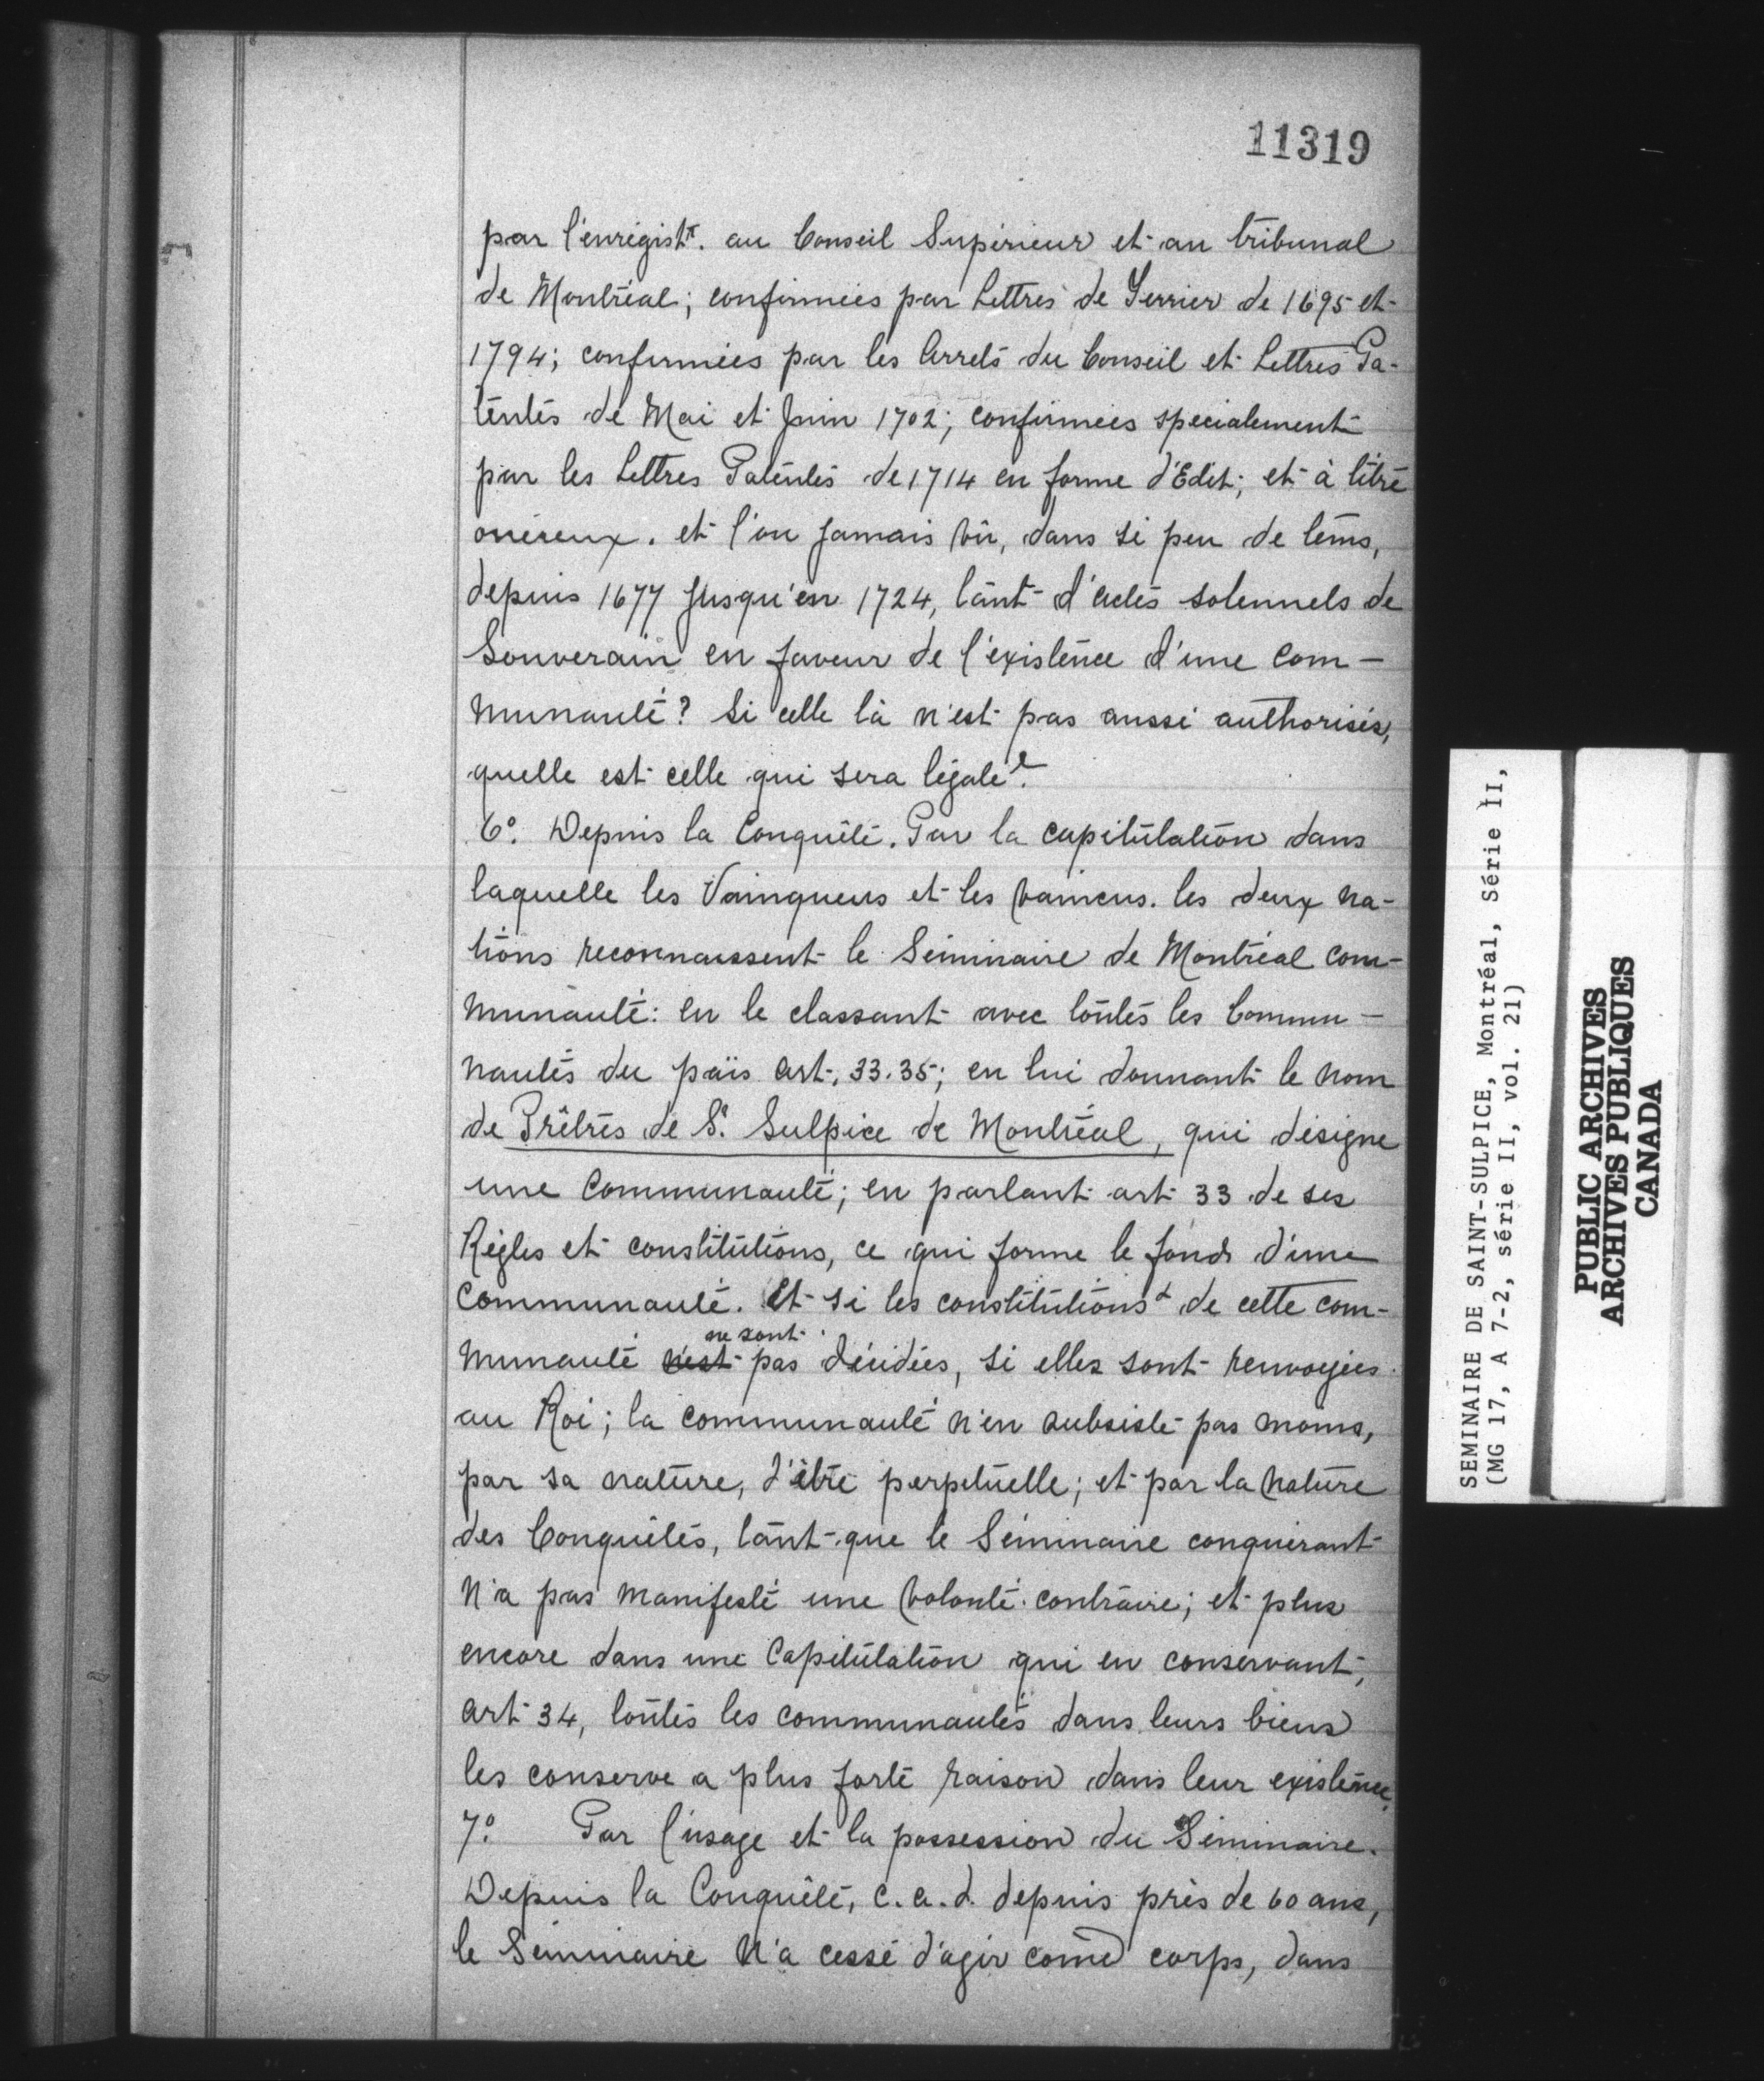 11319
par l'enrégistr. au Conseil Supérieur et au tribunal
de Montréal; confirmées par Lettres de Terrier de 1695 et
1794; confirmées par les Arrets du Conseil et Lettres Pa-
tentes de Mai et Juin 1702; confirmées specialement
par les Lettres Patentes de 1714 en forme d'Edit; et à titre
onéreux. et l'on jamais vû, dans si peu de tems,
depuis 1677 jusqu'en 1724, tant d'actes solennels de
Souverain en faveur de l'existence d'une com-
munauté? Si celle là n'est pas aussi authorisés,
quelle est celle qui sera légale?
6º. Depuis la Conquête. Par la capitulation dans
laquelle les Vainqueus et les vaincus. les deux na-
tions reconnaissent le Séminaire de Montréal com-
munauté: en le classant avec toutes les Commu-
nautés du païs art. 33.35; en lui donnant le nom
de Prêtres de St. Sulpice de Montréal, qui désigne
une Communauté; en parlant art 33 de ses
Règles et constitutions, ce qui forme le fonds d'une
Communauté. Et si les constitutions de cette com-
ne sont
munauté n'est pas décidées, si elles sont renvoyées
au Roi; la communauté n'en subsiste pas moins,
par sa nature, d'être perpetuelle; et par la nature
des Conquêtes, tant que le Séminaire conquérant
n'a pas manifesté une volonté contraire; et plus
encore dans une Capitulation qui en conservant,
art 34, toutes les communautés dans leurs biens
les conserve a plus forte raison dans leur existence.
7º. Par l'usage et la possession du Séminaire.
Depuis la Conquête, c.a.d. depuis près de 60 ans,
le Séminaire n'a cessé d'agir come corps, dans
SEMINAIRE DE SAINT-SULPICE, Montréal, Série II,
(MG 17, A 7-2, série II, vol. 21)
PUBLIC ARCHIVES
ARCHIVES PUBLIQUES
CANADA